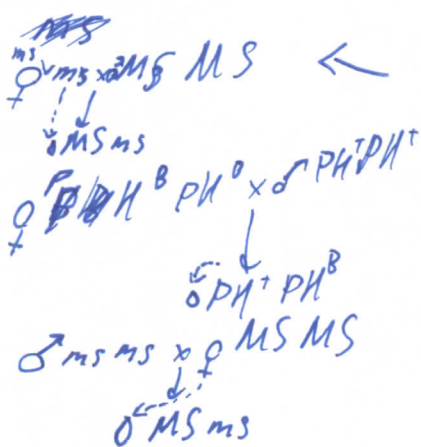 ms
♀ ms x ♂ MS MS ←
MS ms
♀ PH^B PH^0 x ♂ PH^+ PH^+
PH^+ PH^B
♂ ms ms x ♀ MS MS
MS ms